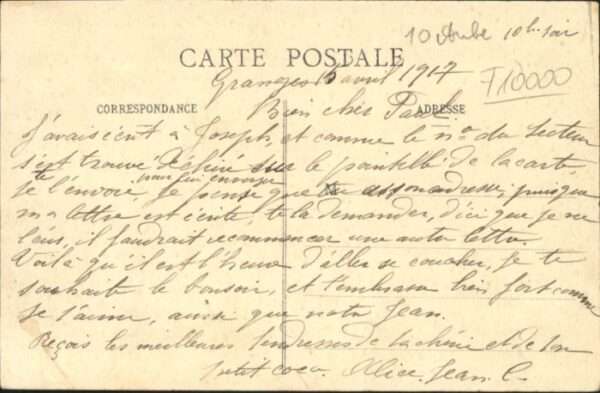 10 Aube 10h. soir
CARTE POSTALE
Granges 16 avril 1917
F10000
CORRESPONDANCE ADRESSE
Bien cher Paul.
J'avais écrit à Joseph, et comme le no du secteur
s'est trouvé sur le pointillé de la carte,
je te l'envoie, pour lui envoyer je pense que tu as son adresse; puisque
ma lettre est écrite, te la demander, d'ici que je ne
l'eus, il faudrait recommencer une autre lettre.
Voilà qu'il est l'heure d'aller se coucher, je te
souhaite le bonsoir, et t'embrasse bien fort comme
je t'aime, ainsi que notre Jean.
Reçois les meilleures tendresses de ta chérie et de ton
petit coco. Alice. Jean. C.